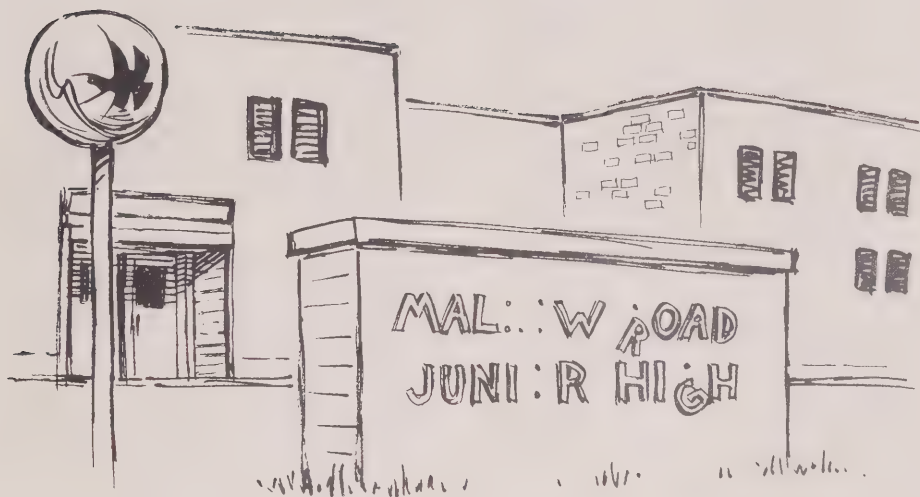 MAL::W ROAD
JUNI:R HIGH